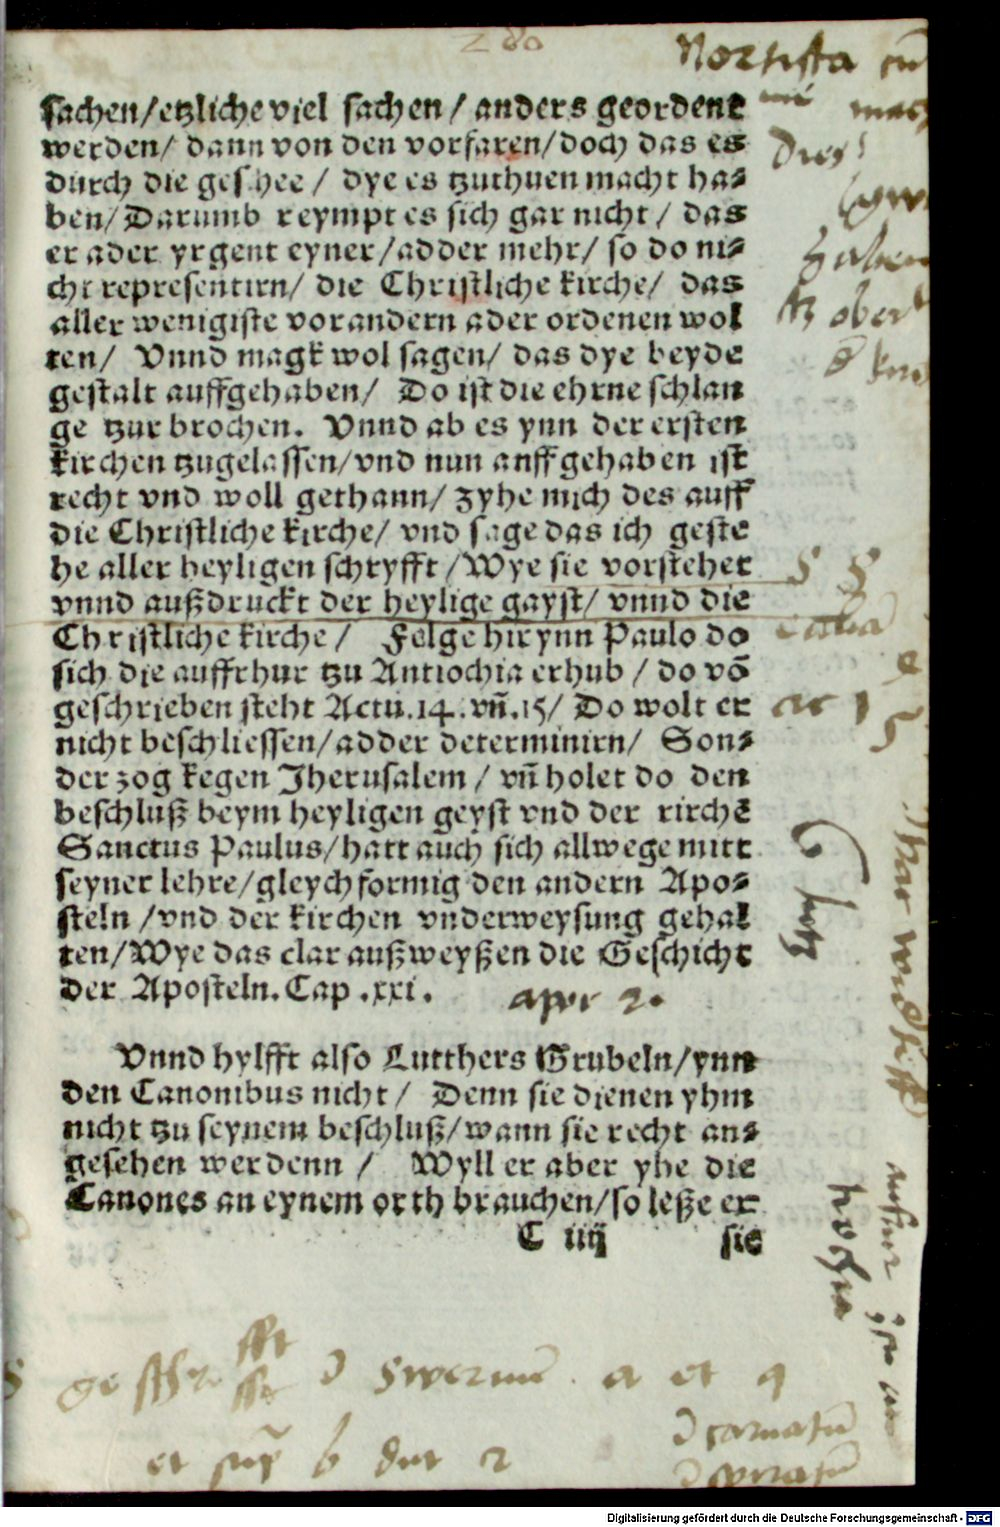 280
sachen/etzliche viel sachen/ anders geordent
werden/ dann von den vorfaren/doch das es
durch die geschee/ dye es tzuthuen macht ha⸗
ben/Darumb reympt es sich gar nicht/ das
er ader yrgent eyner/adder mehr/ so do ni⸗
cht representirn/ die Christliche kirche/ das
aller wenigiste vor andern ader ordenen wol
ten/ Vnnd magk wol sagen/ das dye beyde
gestalt auffgehaben/ Do ist die ehrne schlan
ge tzurbrochen. Vnnd ab es ynn der ersten
kirchen tzugelassen/vnd nun anffgehaben ist
recht vnd woll gethann/ zyhe mich des auff
die Christliche kirche/ vnd sage das ich geste
he aller heyligen schryfft/Wye sie vorstehet
vnnd außdruckt der heylige gayst/ vnnd die
Christliche kirche/ Felge hirynn Paulo do
sich die auffrhur tzu Antiochia erhub/ do võ
geschrieben steht Actu.14.vñ.15/ Do wolt er
nicht beschliessen/adder determinirn/ Son⸗
der zog kegen Jherusalem/ vñ holet do den
beschluß beym heyligen geyst vnd der kirchẽ
Sanctus Paulus/hatt auch sich allwege mitt
seyner lehre/gleychformig den andern Apo⸗
steln/vnd der kirchen vnderweysung gehal
ten/Wye das clar außweyßen die Geschicht
der Aposteln.Cap.xxi.
Vnnd hylfft also Lutthers Grubeln/ynn
den Canonibus nicht/ Denn sie dienen yhm
nicht tzu seynem beschluß/wann sie recht an⸗
gesehen werdenn/ Wyll er aber yhe die
Canones an eynem orth brauchen/so leße er
C iiij sie
a et q
et b 2
Digitalisierung gefördert durch die Deutsche Forschungsgemeinschaft - DFG